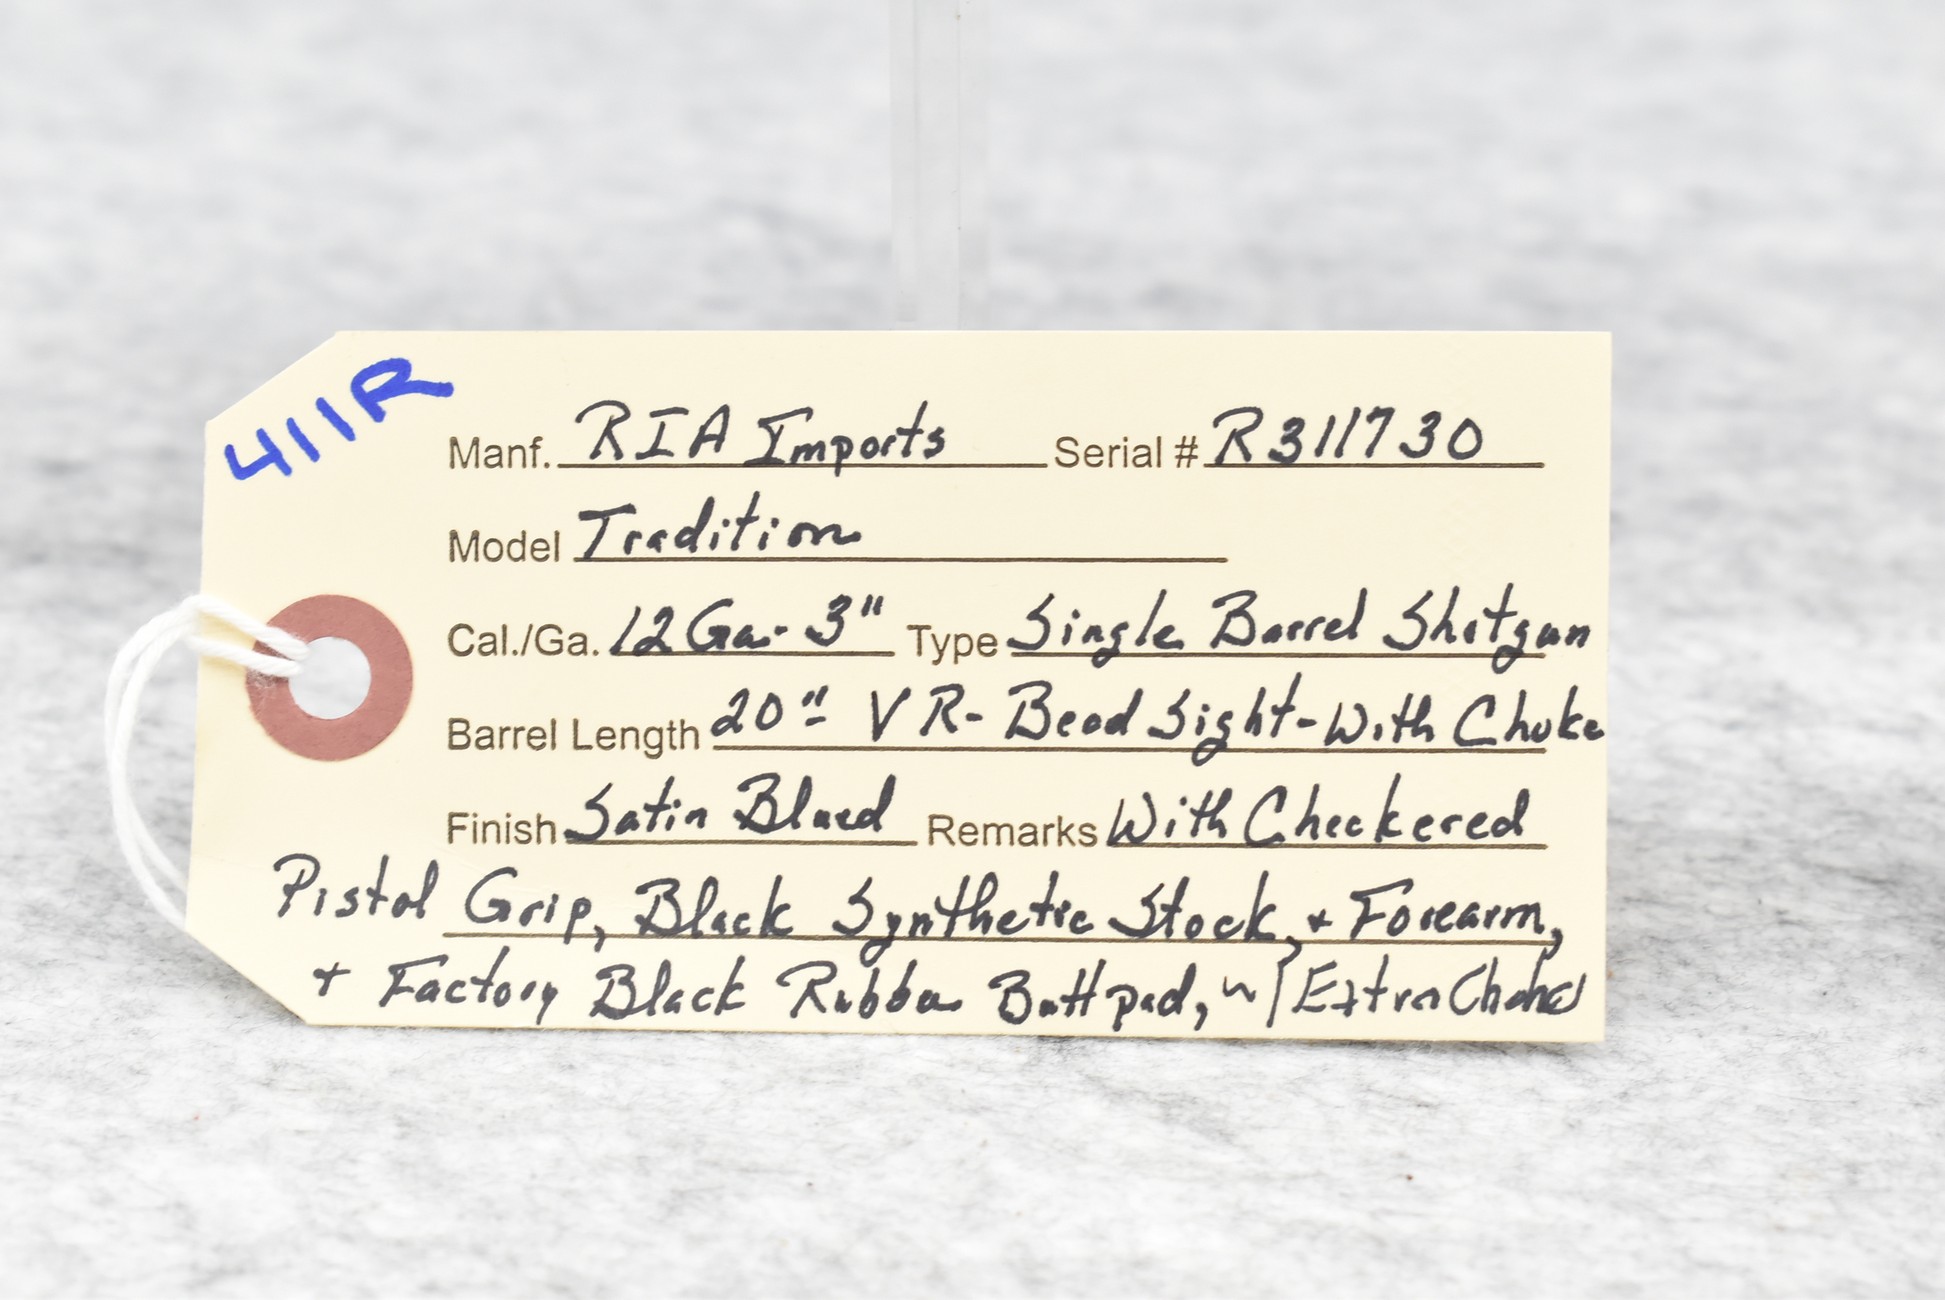 411R
Manf. RIA Imports Serial # R311730
Model Tradition
Cal./Ga. 12 Ga- 3" Type Single Barrel Shotgun
Barrel Length 20" VR- Bead Sight- With Choke
Finish Satin Blued Remarks With Checkered
Pistol Grip, Black Synthetic Stock, + Forearm,
+ Factory Black Rubber Butt pad, w/ Extra Chokes